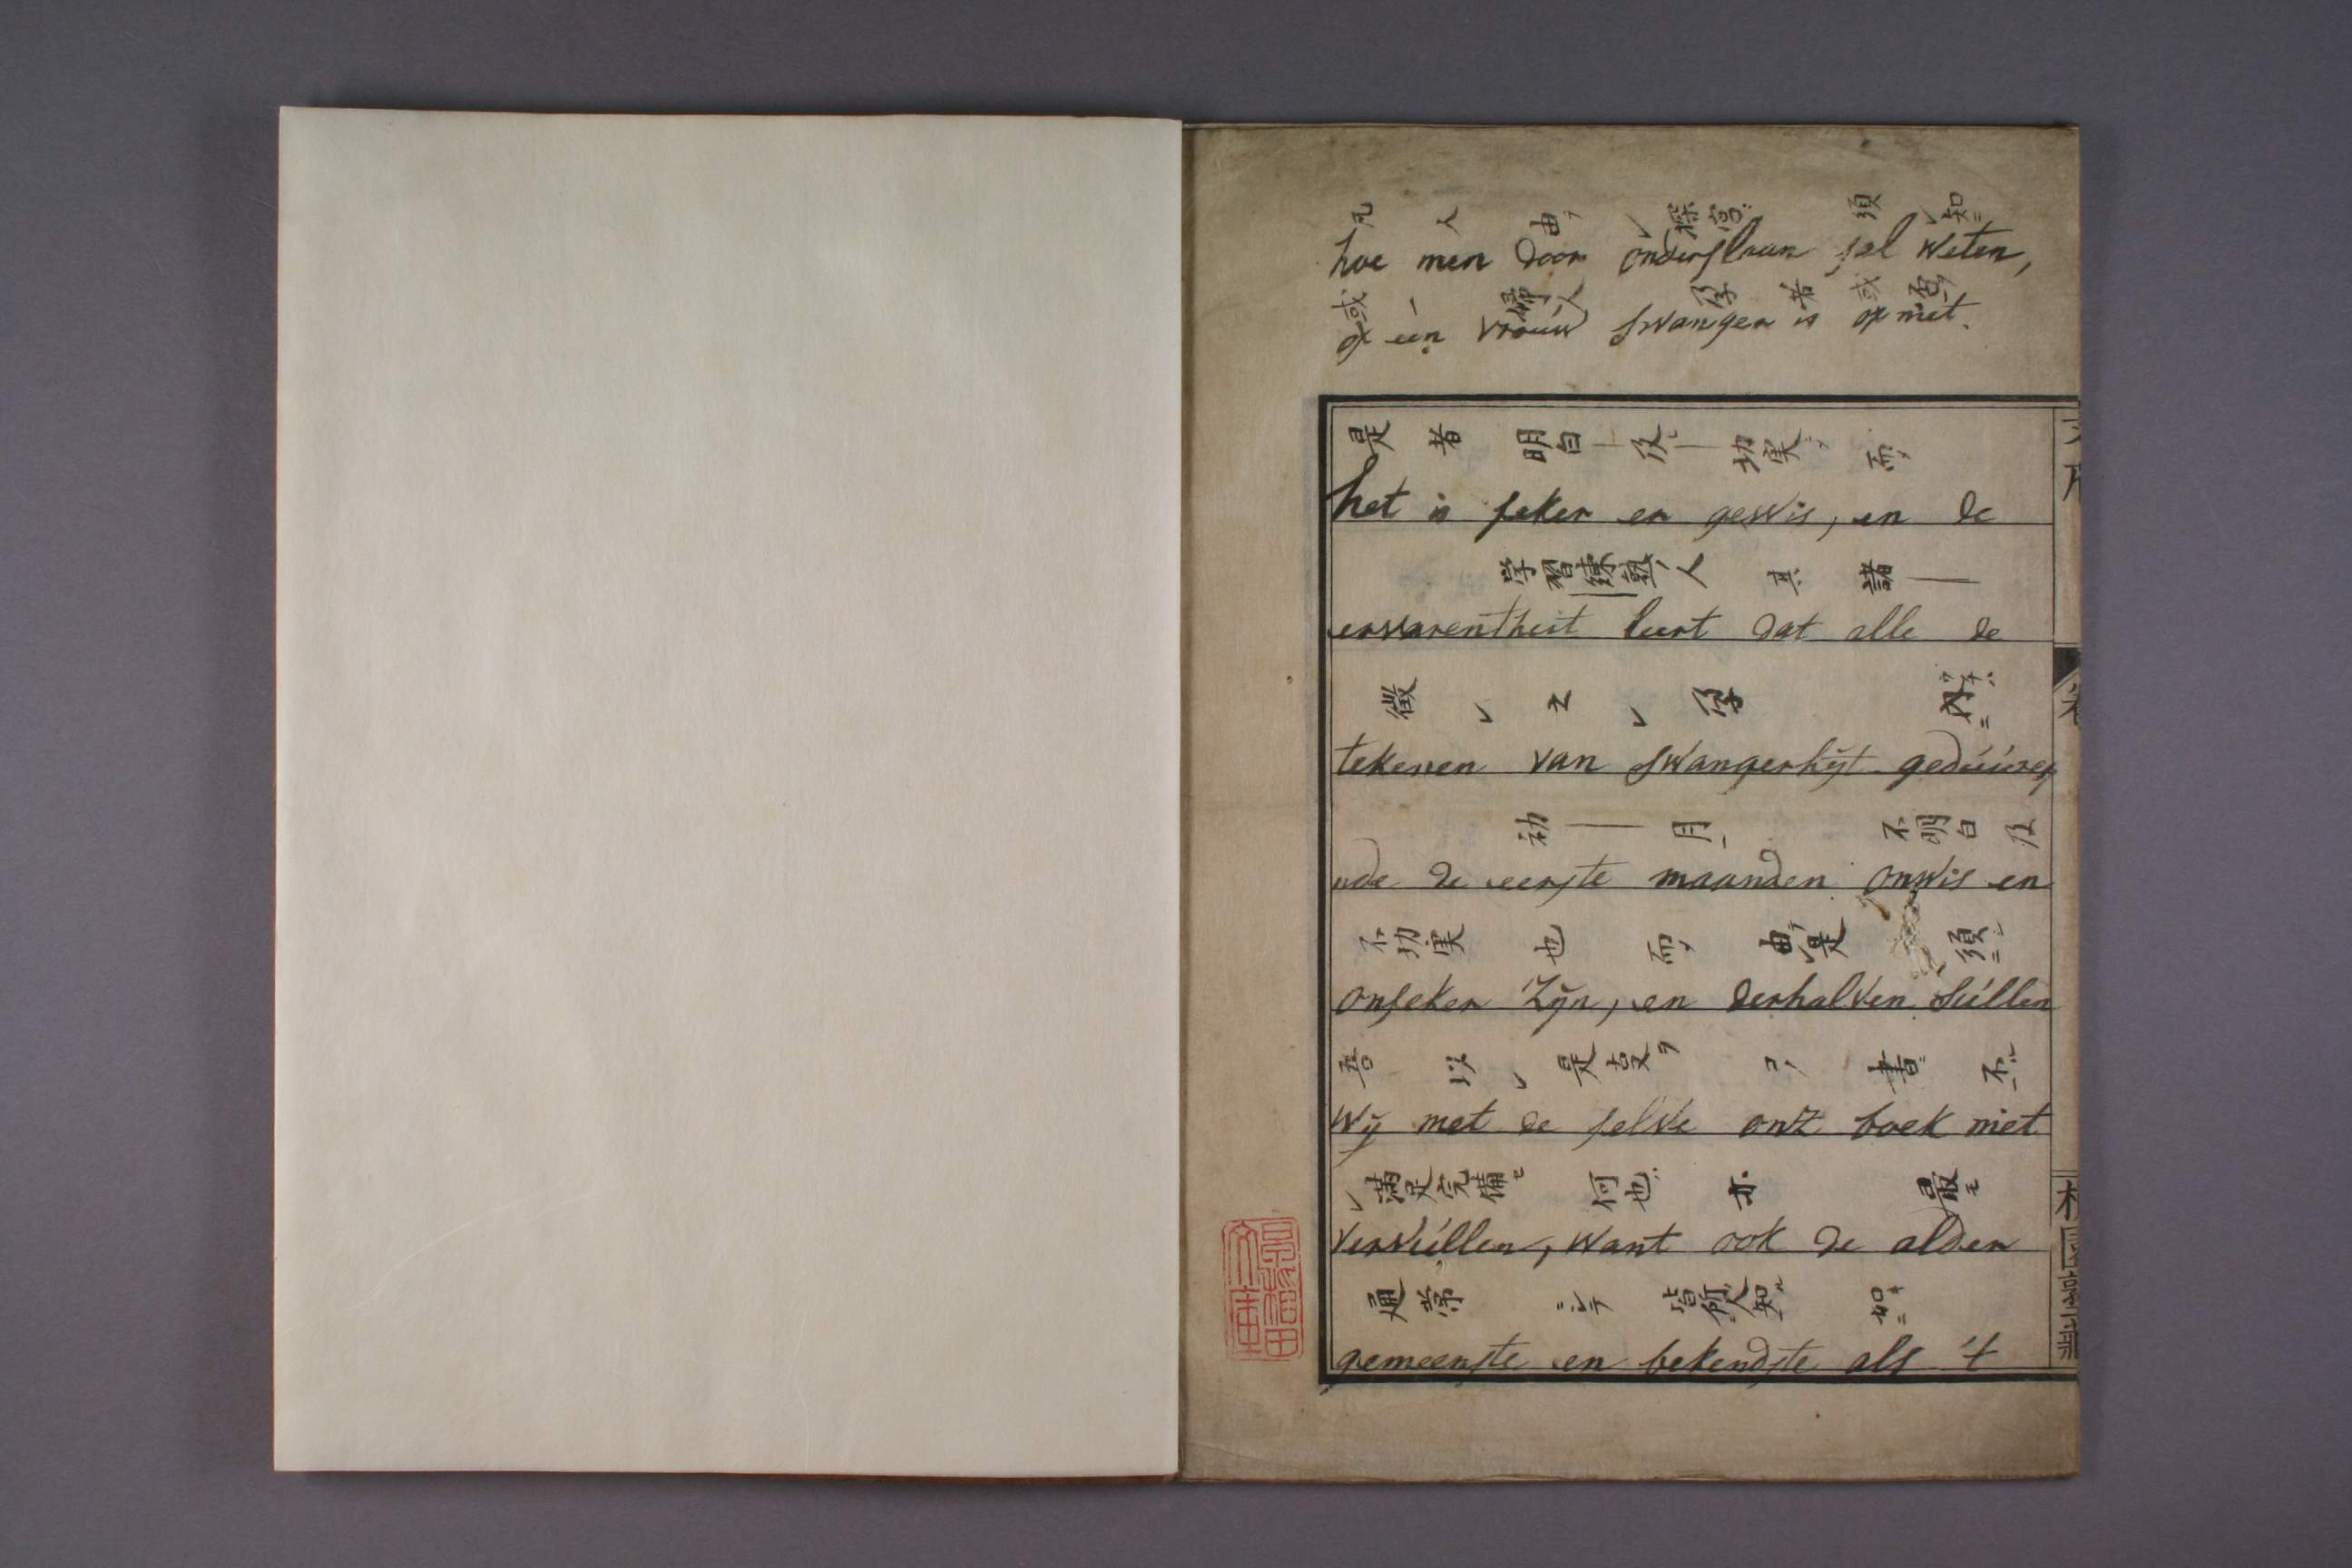 凡 人 由 探宮 須 知
hoe men door onderslaan sal weten,
或 一 婦人 孕 若 或 否
of een vrouw swanger is of niet.
是 者 明白 及 切実 而
het is seker en gewis, en de
学習練熟人 其 諸
ervarentheit leert dat alle de
徴 之 孕
tekenen van swangerhijt geduure
初 月 不明白 及
nde de eerste maanden onwis en
不切実 也 而 由是 須
onseker Zijn, en derhalven sullen
吾 以 是 書 不
Wij met de selve onz boek niet
満足完備 何也 亦 最
vervullen, want ook de alder
通常 シテ 皆所人知 如
gemeenste en bekendste als 't
早稲田
文庫